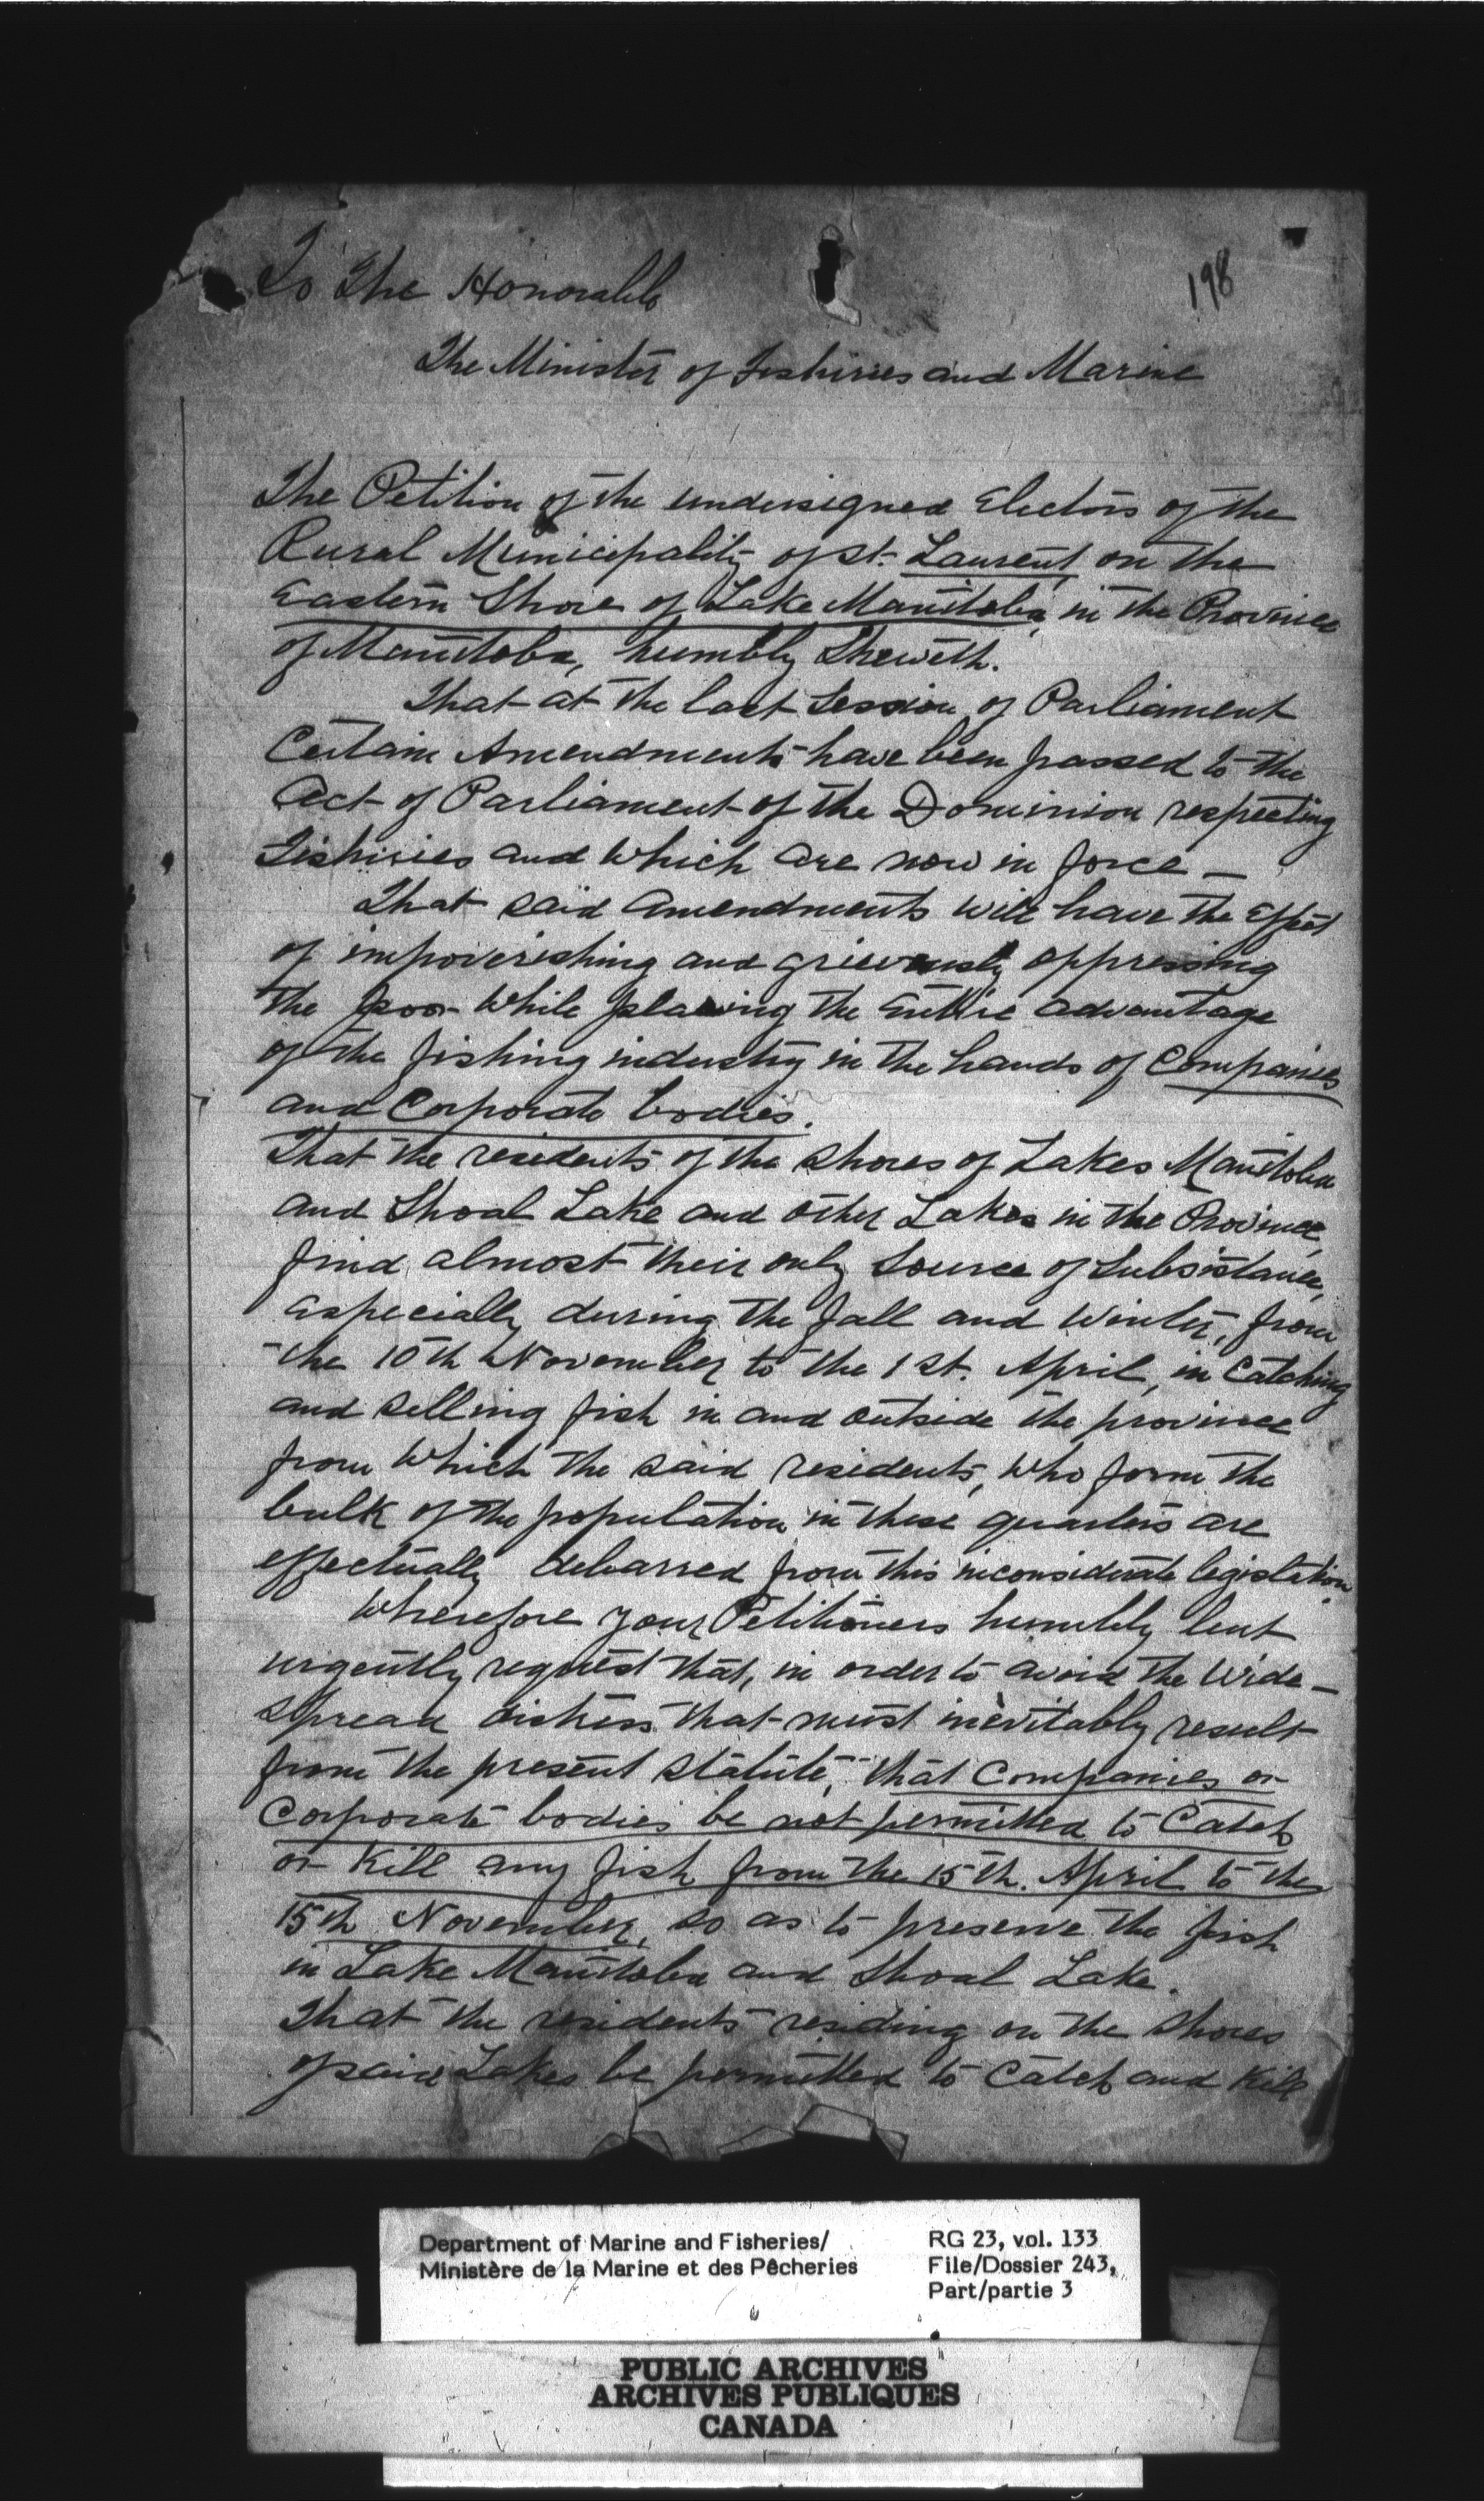 To The Honorable
198
The Minister of Fishiries and Marine
The Petition of the undersigned Electors of the
Rural Municipality of St. Laurent, on the
Eastern Shore of Lake Manitoba, in the Province
of Manitoba, humbly Sheweth.
That at the last Session of Parliament
Certain Amendments have been passed to the
Act of Parliament of the Dominion respecting
Fishiries and which are now in force —
That said amendments will have the Effect
of impoverishing and grievously oppressing
the poor while placing the entire advantage
of the fishing industry in the hands of Companies
and Corporate bodies.
That the residents of the shores of Lakes Manitoba
and Shoal Lake and other Lakes in the Province,
find almost their only Source of Subsistance,
especially during the fall and Winter, from
the 10th November to the 1st. April, in Catching
and selling fish in and outside the province
from which the said residents, who form the
bulk of the population in these quarters are
effectually debarred from this inconsiderate legislation.
Wherefore your Petitioners humbly but
urgently request that, in order to avoid the Wide-
spread distress that must inevitably result
from the present statute, that Companies or
Corporate bodies be not permitted to Catch
or Kill any fish from the 15th. April to the
15th November, so as to preserve the fish
in Lake Manitoba and Shoal Lake.
That the residents residing on the Shores
of said Lakes be permitted to Catch and Kill
Department of Marine and Fisheries/
Ministère de la Marine et des Pêcheries
RG 23, vol. 133
File/Dossier 243,
Part/partie 3
PUBLIC ARCHIVES
ARCHIVES PUBLIQUES
CANADA